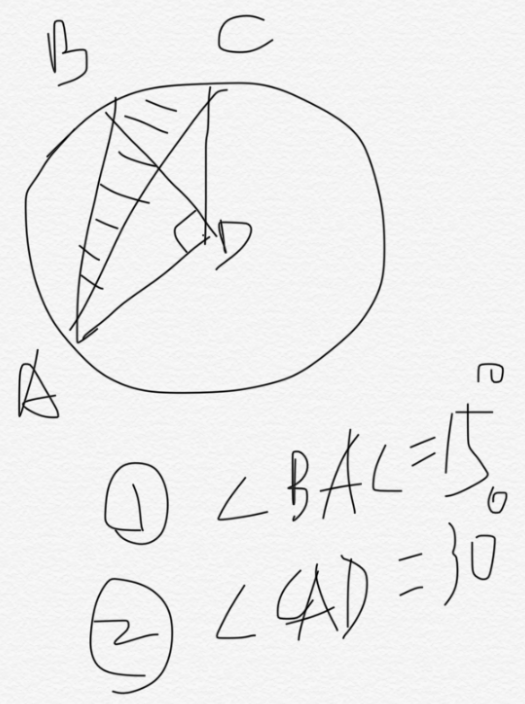 B C
D
A
① ∠BAC=15°
② ∠CAD=30°